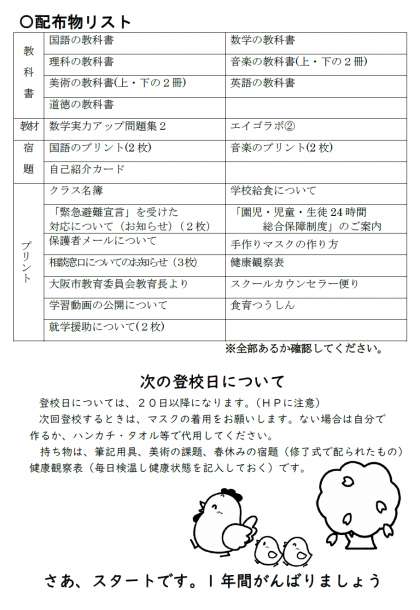 ○配布物リスト
教科書
国語の教科書 数学の教科書
理科の教科書 音楽の教科書(上・下の2冊)
美術の教科書(上・下の2冊) 英語の教科書
道徳の教科書
教材 数学実力アップ問題集2 エイゴラボ②
宿題
国語のプリント(2枚) 音楽のプリント(2枚)
自己紹介カード
プリント
クラス名簿 学校給食について
「緊急避難宣言」を受けた 「園児・児童・生徒24時間
対応について(お知らせ)(2枚) 総合保障制度」のご案内
保護者メールについて 手作りマスクの作り方
相談窓口についてのお知らせ(3枚) 健康観察表
大阪市教育委員会教育長より スクールカウンセラー便り
学習動画の公開について 食育つうしん
就学援助について(2枚)
※全部あるか確認してください。
次の登校日について
登校日については、20日以降になります。(HPに注意)
次回登校するときは、マスクの着用をお願いします。ない場合は自分で
作るか、ハンカチ・タオル等で代用してください。
持ち物は、筆記用具、美術の課題、春休みの宿題(修了式で配られたもの)
健康観察表(毎日検温し健康状態を記入しておく)です。
さあ、スタートです。1年間がんばりましょう